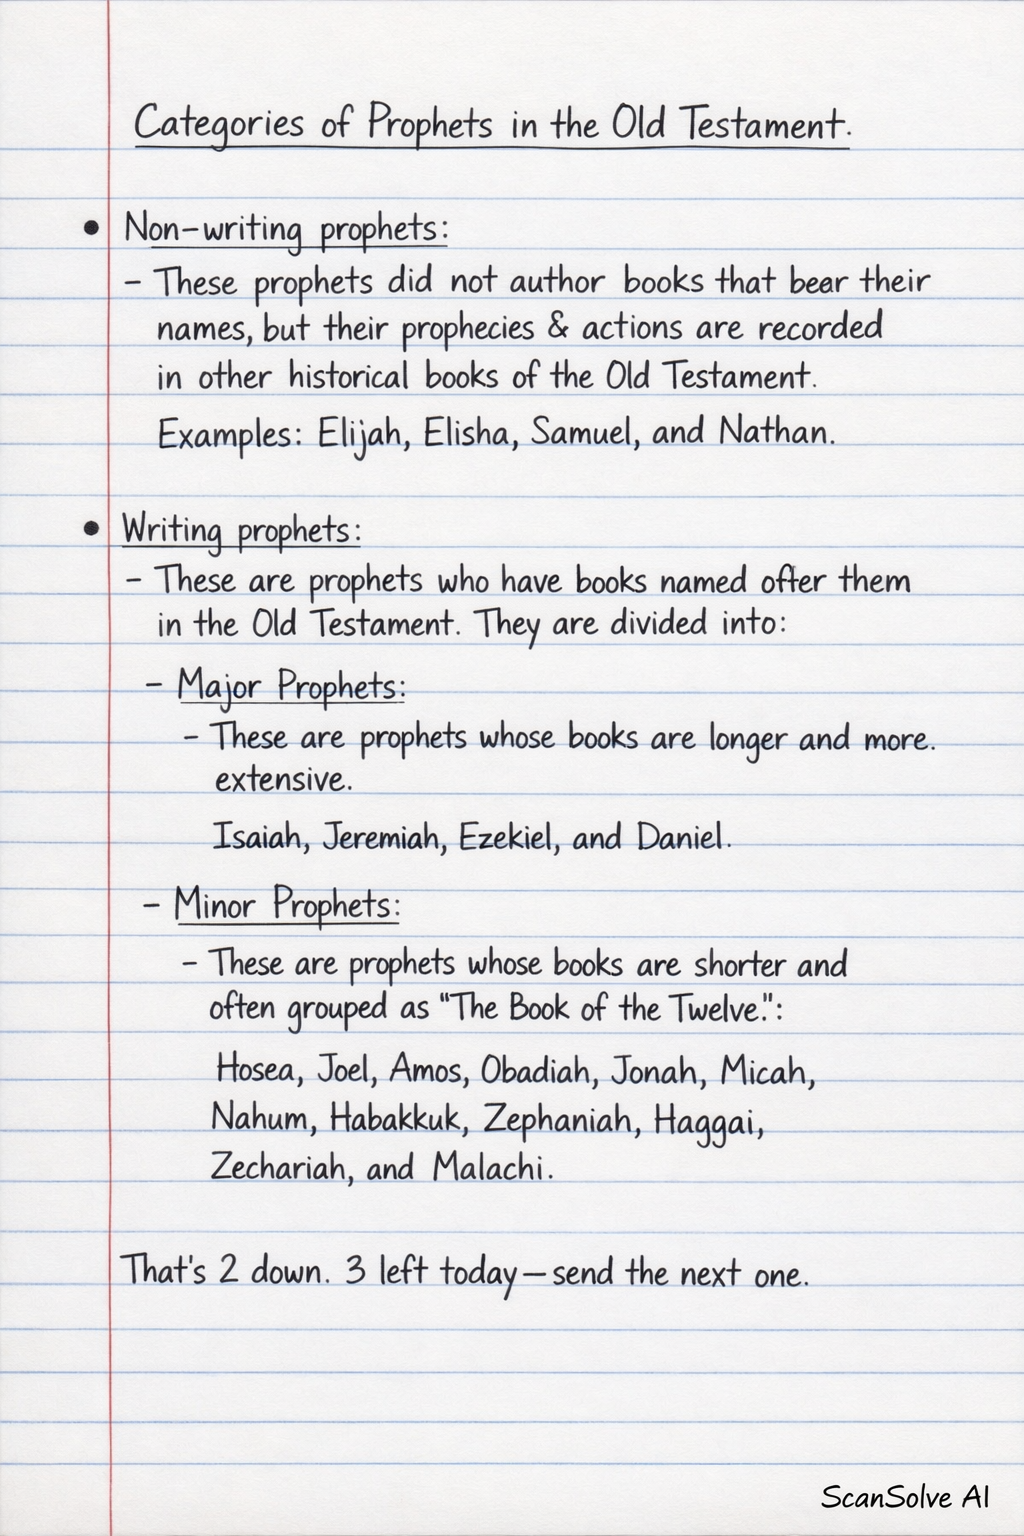 Categories of Prophets in the Old Testament.
• Non-writing prophets:
- These prophets did not author books that bear their
names, but their prophecies & actions are recorded
in other historical books of the Old Testament.
Examples: Elijah, Elisha, Samuel, and Nathan.
• Writing prophets:
- These are prophets who have books named ofter them
in the Old Testament. They are divided into:
- Major Prophets:
- These are prophets whose books are longer and more.
extensive.
Isaiah, Jeremiah, Ezekiel, and Daniel.
- Minor Prophets:
- These are prophets whose books are shorter and
often grouped as "The Book of the Twelve.":
Hosea, Joel, Amos, Obadiah, Jonah, Micah,
Nahum, Habakkuk, Zephaniah, Haggai,
Zechariah, and Malachi.
That's 2 down. 3 left today—send the next one.
ScanSolve AI